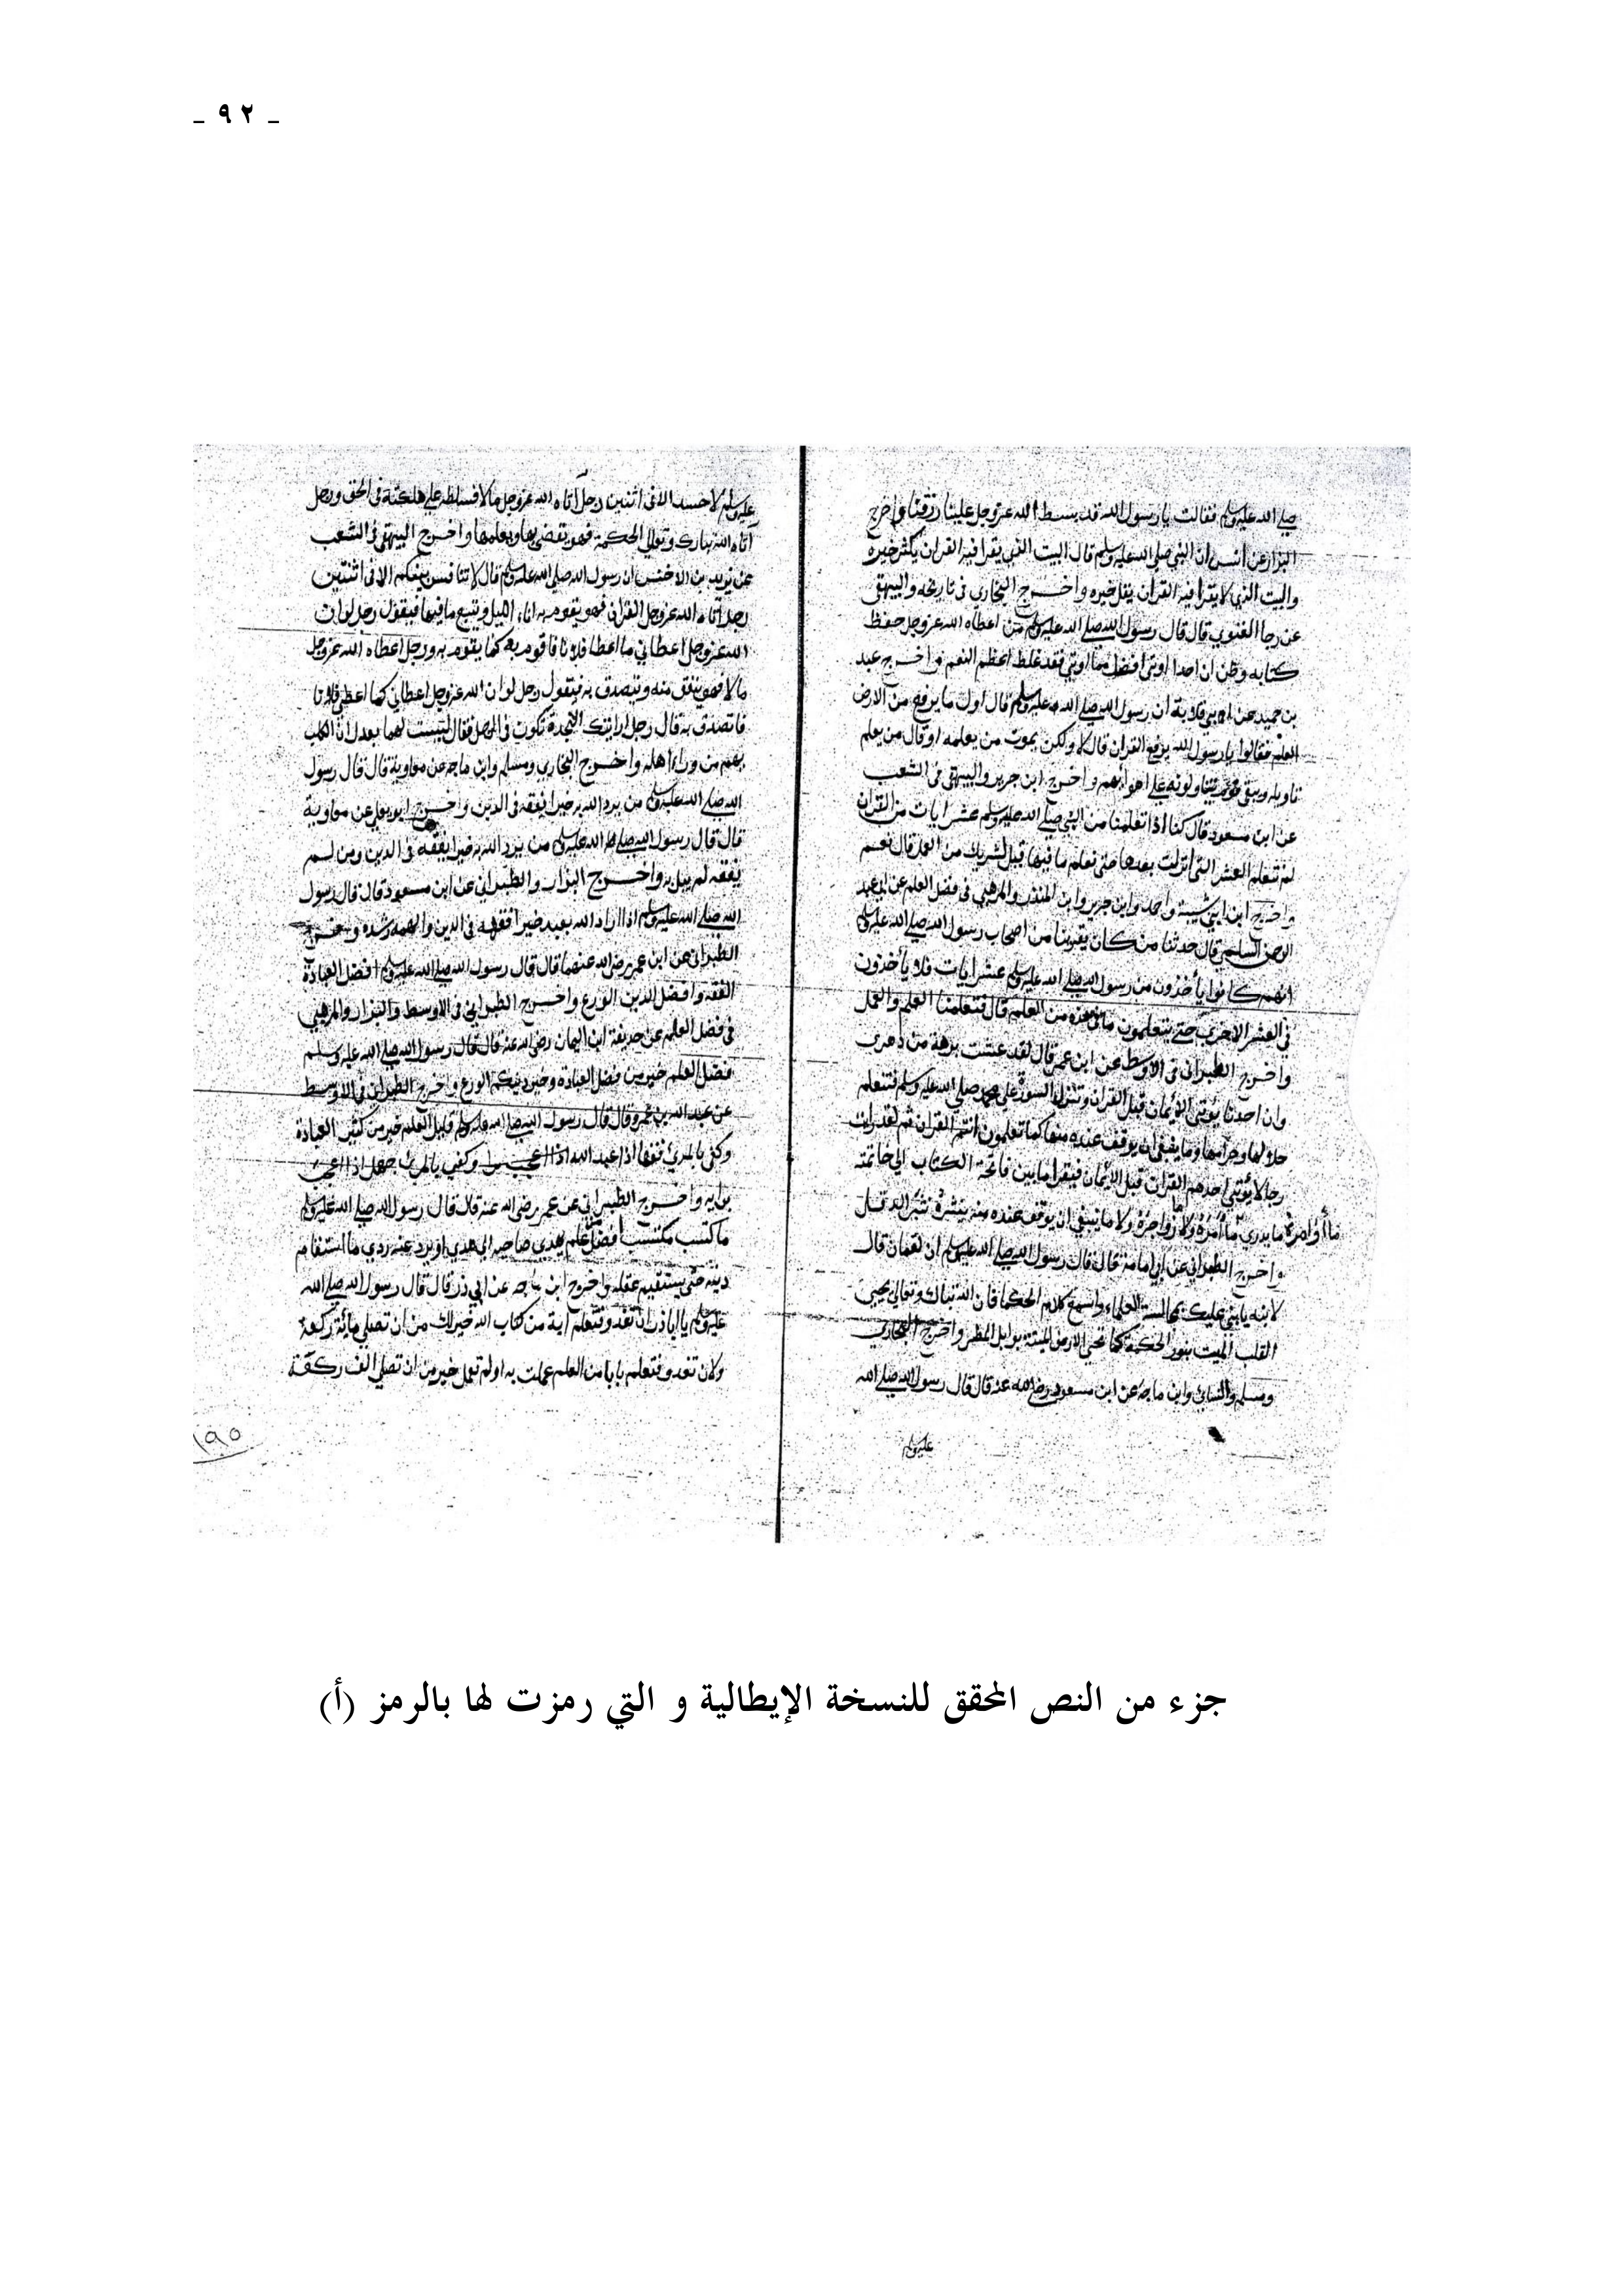 - ٩٢ -
صلى الله عليه وسلم فقالت يارسول الله قد بسط الله عز وجل علينا رزقنا واخرج
البزار عن انس ان النبي صلى الله عليه وسلم قال البيت الذي يقرا فيه القران يكثر خيره
والبيت الذي لا يقرا فيه القران يقل خيره واخرج البخاري في تاريخه والبيهقي
عن رجا الغنوي قال قال رسول الله صلى الله عليه وسلم من اعطاه الله عز وجل حفظ
كتابه وظن ان احدا اوتي افضل مما اوتي فقد غلط اعظم النعم واخرج عبد
بن حميد عن ان رسول الله صلى الله عليه وسلم قال اول ما يرفع من الارض
العلم فقالوا يا رسول الله يرفع القران قال لا ولكن يموت من يعلمه او قال من يعلم
تاويله ويبقى قوم يتاولونه على اهوائهم واخرج ابن جرير والبيهقي في الشعب
عن ابن مسعود قال كنا اذا تعلمنا من النبي صلى الله عليه وسلم عشر ايات من القران
لم نتعلم العشر التي انزلت بعدها حتى نعلم ما فيها قيل لشريك من العمل قال نعم
واخرج ابن ابي شيبة واحد وابن جرير وابن المنذر والمرهبي في فضل العلم عن ابي عبد
الرحمن السلمي قال حدثنا من كان يقرينا من اصحاب رسول الله صلى الله عليه وسلم
انهم كانوا يأخذون من رسول الله صلى الله عليه وسلم عشر ايات فلا ياخذون
في العشر الاخرى حتى يتعلمون ما في هذه من العلم قال فتعلمنا العلم والعمل
واخرج الطبراني في الاوسط عن ابن عمر قال لقد عشت برهة من دهري
وان احدنا يؤتى الايمان قبل القران وتنزل السورة على محمد صلى الله عليه وسلم فنتعلم
حلالها وحرامها وما ينبغي ان يوقف عنده منها كما تعلمون انتم القران ثم لقد رايت
رجالا يؤتى احدهم القران قبل الايمان فيقرا ما بين فاتحة الكتاب الى خاتمته
ما يدري ما أمره ولا زواجره ولا ما ينبغي ان يوقف عنده منه ينثره نثر الدقل
واخرج الطبراني عن ابي امامة قال قال رسول الله صلى الله عليه وسلم ان لقمان قال
لابنه يابني عليك بمجالسة العلماء واسمع كلام الحكما فان الله تبارك وتعالى يحيى
القلب الميت بنور الحكمة كما تحيى الارض الميتة بوابل المطر واخرج البخاري
ومسلم والنسائي وابن ماجه عن ابن مسعود رضي الله عنه قال قال رسول الله صلى الله
عليه وسلم
عليه وسلم لا حسد الا في اثنين رجل اتاه الله عز وجل مالا فسلطه على هلكته في الحق ورجل
اتاه الله تبارك وتعالى الحكمة فهو يقضي بها ويعلمها واخرج البيهقي في الشعب
عن يزيد بن الاخنس ان رسول الله صلى الله عليه وسلم قال لا تنافس بينكم الا في اثنتين
رجل اتاه الله عز وجل القران فهو يقوم به اناء الليل ويتبع ما فيها فيقول رجل لو ان
الله عز وجل اعطاني ما اعطا فلانا فاقوم به كما يقوم به ورجل اعطاه الله عز وجل
مالا فهو ينفق منه ويتصدق به فيقول رجل لو ان الله عز وجل اعطاني كما اعطى فلانا
فاتصدق به قال رجل ارايتك النجدة تكون في الرجل فقال ليست لهما بعدل ان الكلب
يهم من وراء اهله واخرج البخاري ومسلم وابن ماجه عن معاوية قال قال رسول
الله صلى الله عليه وسلم من يرد الله به خيرا يفقه في الدين واخرج ابو يعلى عن معاوية
قال قال رسول الله صلى الله عليه وسلم من يرد الله به خيرا يفقهه في الدين ومن لم
يفقه لم يبل به واخرج البزار والطبراني عن ابن مسعود قال قال رسول
الله صلى الله عليه وسلم اذا اراد الله بعبد خيرا فقهه في الدين والهمه رشده واخرج
الطبراني عن ابن عمر رضي الله عنهما قال قال رسول الله صلى الله عليه وسلم افضل العبادة
الفقه وافضل الدين الورع واخرج الطبراني في الاوسط والبزار والمرهبي
في فضل العلم عن حذيفة ابن اليمان رضي الله عنه قال قال رسول الله صلى الله عليه وسلم
فضل العلم خير من فضل العبادة وخير دينكم الورع واخرج الطبراني في الاوسط
عن عبد الله بن عمرو قال قال رسول الله صلى الله عليه وسلم قليل العلم خير من كثير العبادة
وكفى بالمرئ فقها اذا عبد الله وكفى بالمرئ جهل اذا اعجب
برايه واخرج الطبراني عن عمر رضي الله عنه قال قال رسول الله صلى الله عليه وسلم
ما اكتسب مكتسب افضل علم يهدي صاحبه الى هدي او يرد عنه ردي ما استقام
دينه حتى يستقيم عقله واخرج ابن ماجه عن ابي ذر قال قال رسول الله صلى الله
عليه وسلم يا اباذر ان تغدو فتعلم اية من كتاب الله خير لك من ان تصلي مائة ركعة
ولان تغدو فتعلم بابا من العلم عملت به اولم تعمل خير من ان تصلي الف ركعة
١٩٥
جزء من النص المحقق للنسخة الإيطالية و التي رمزت لها بالرمز (أ)